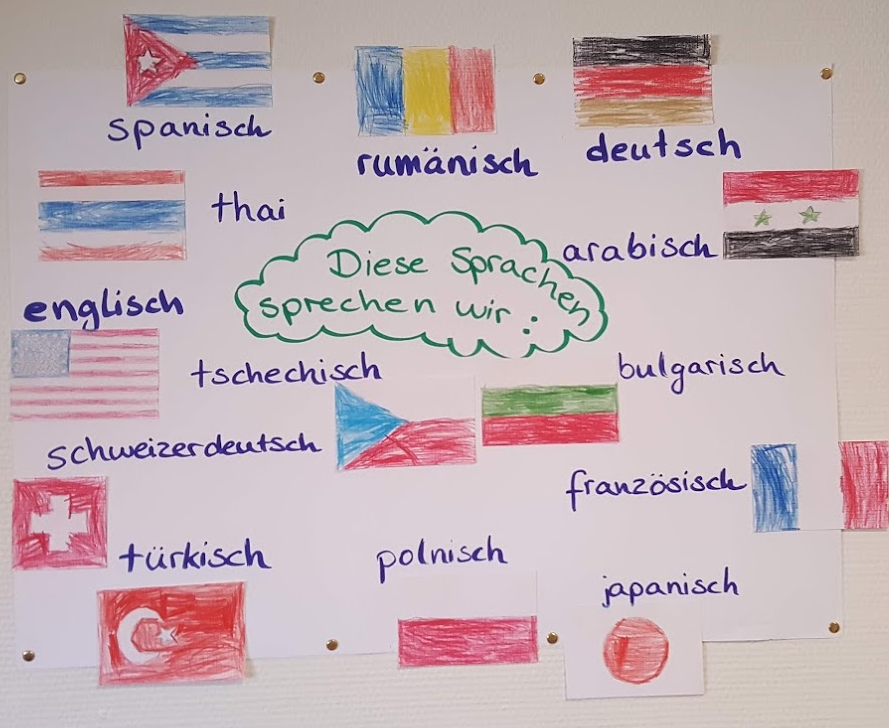 spanisch
rumänisch
deutsch
thai
arabisch
Diese Sprachen
sprechen wir:
englisch
tschechisch
bulgarisch
schweizerdeutsch
französisch
türkisch
polnisch
japanisch